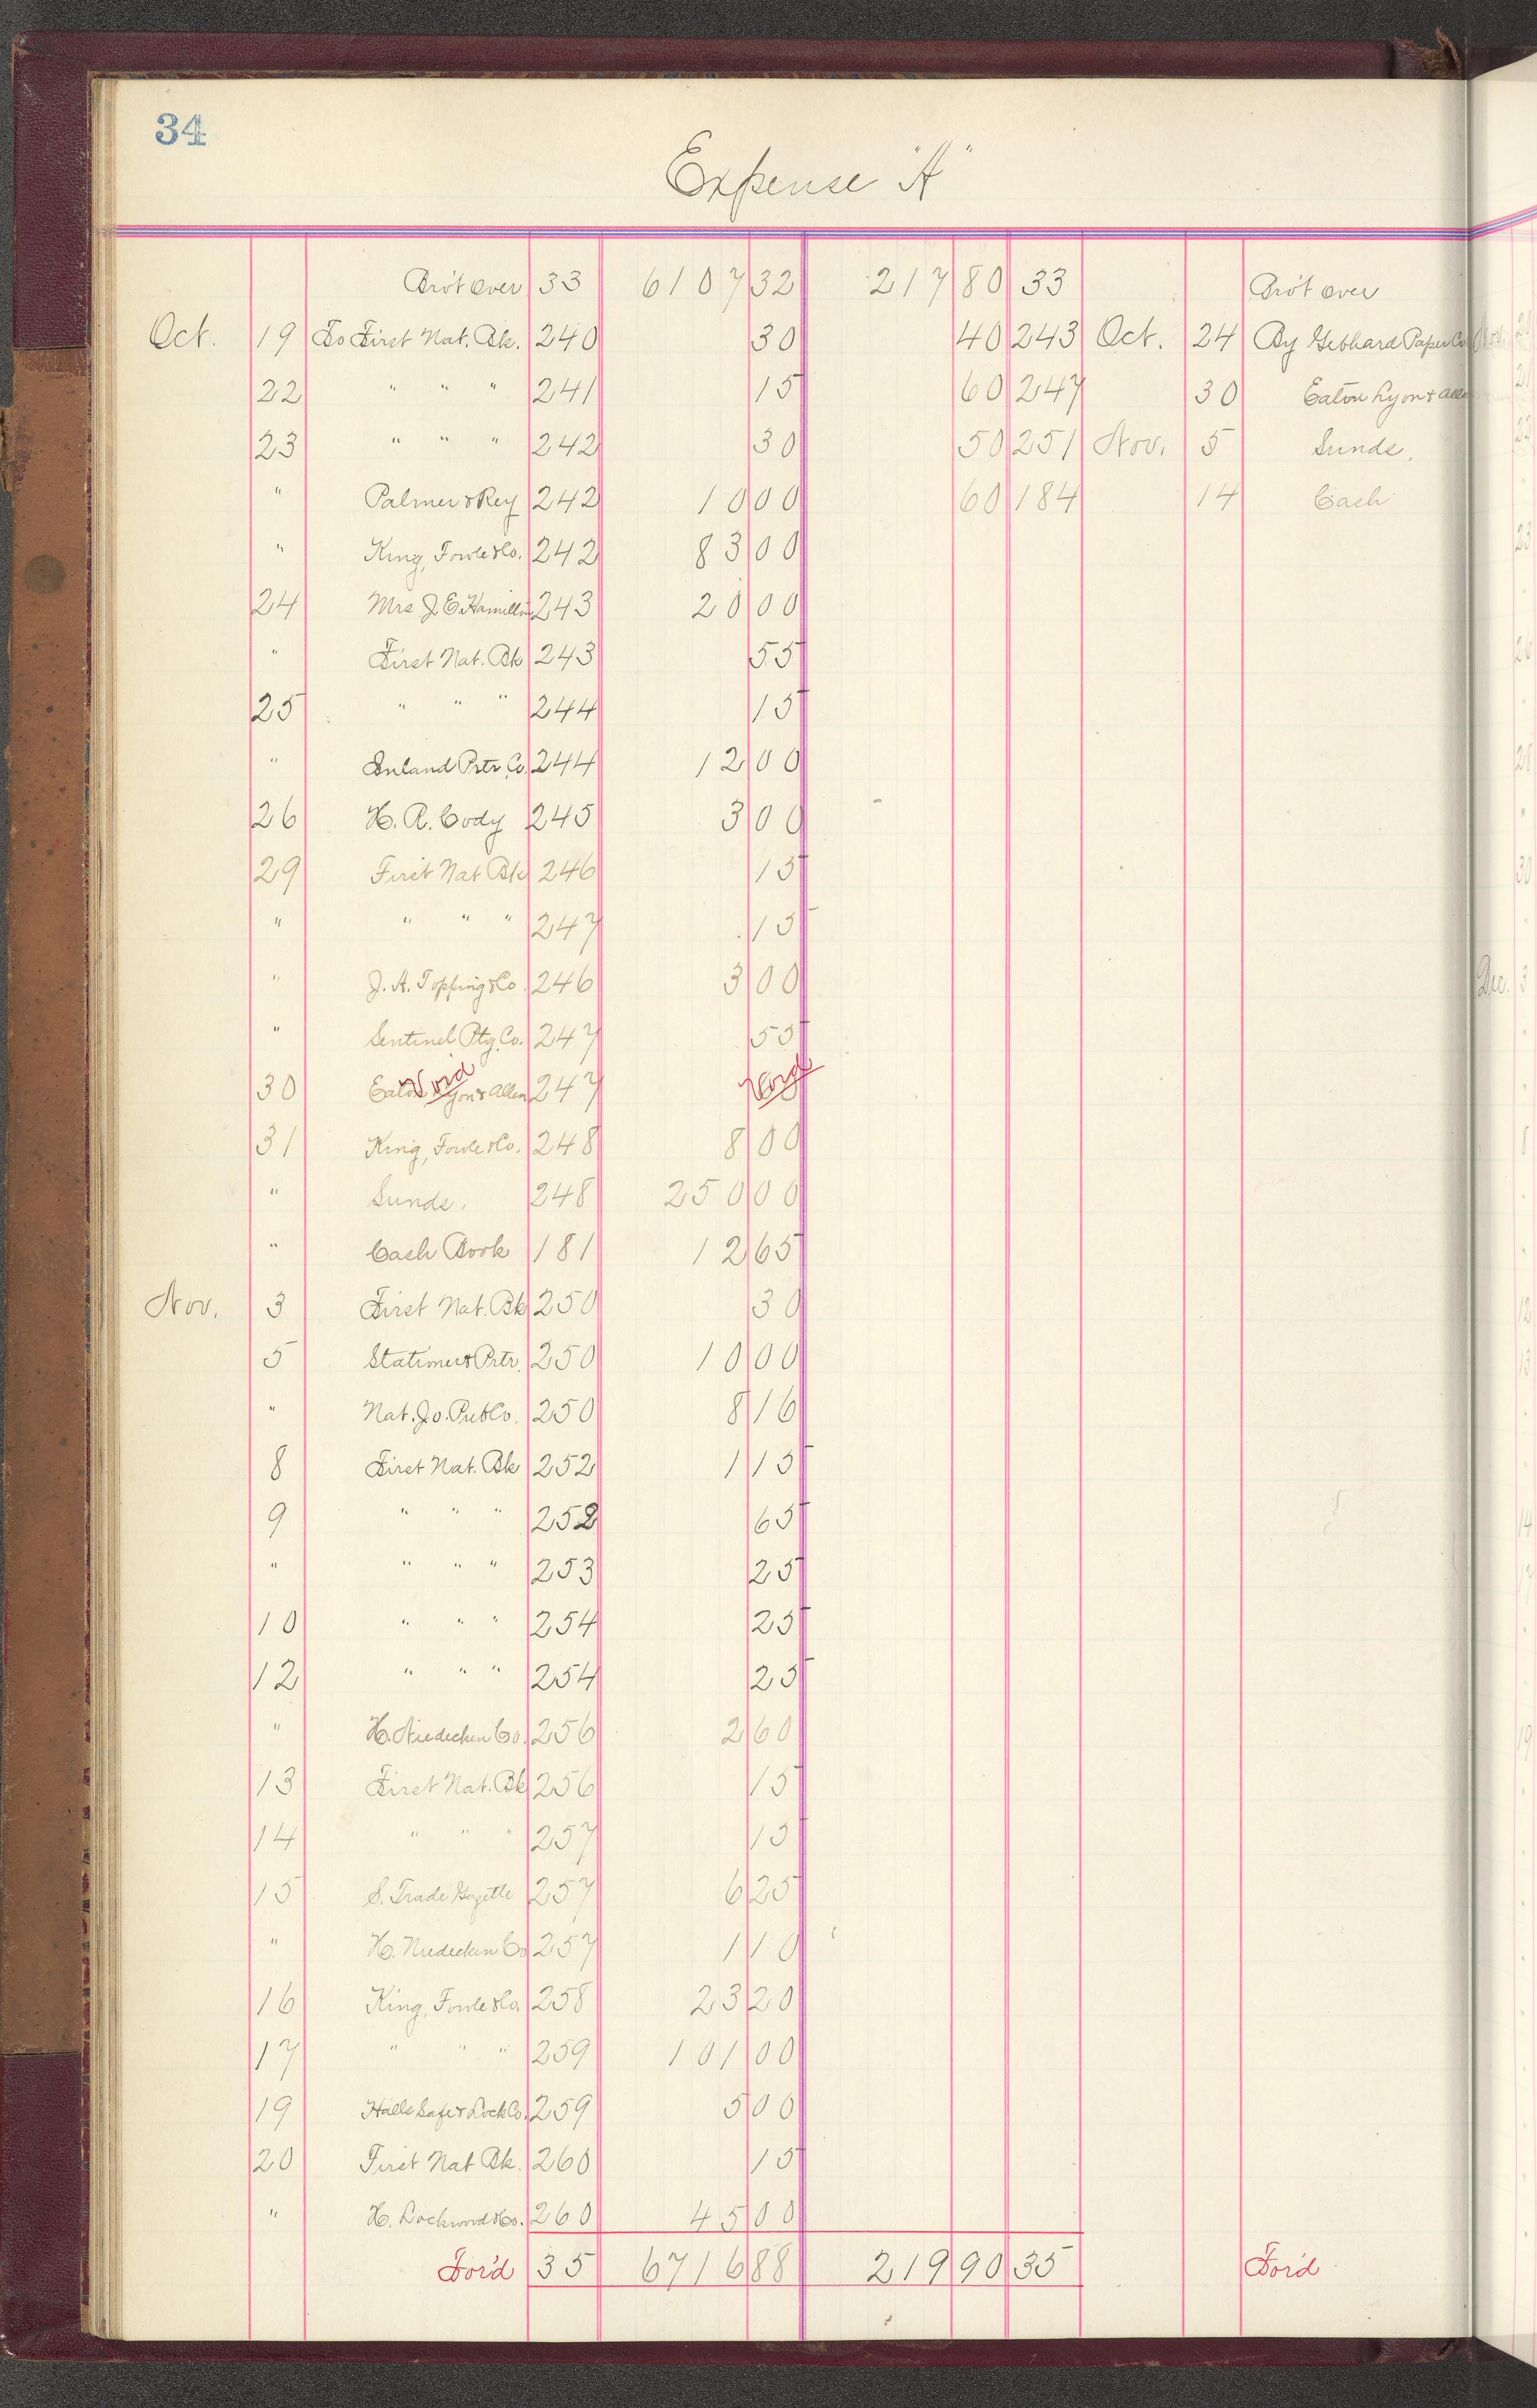 34
Expense "A"
Bro't over 33 6107 32 217 80 33 Bro't over
Oct. 19 To First Nat. Bk. 240 30 40 243 Oct. 24 By Gebhard Paper Co
22 " " " 241 15 60 247 30 Eaton Lyon & Alle
23 " " " 242 30 50 251 Nov. 5 Sunds.
" Palmer & Rey 242 10 00 60 184 14 Cash
" King, Fowle & Co. 242 83 00
24 Mrs J. E. Hamilton 243 20 00
" First Nat. Bk 243 55
25 " " " 244 15
" Inland Prtr. Co. 244 12 00
26 H. R. Cody 245 3 00
29 First Nat Bk 246 15
" " " " 247 15
" J. A. Topping & Co. 246 3 00
" Sentinel Ptg. Co. 247 55
30 Eaton Lyon & Allen Void 247 Void
31 King, Fowle & Co. 248 8 00
" Sunds. 248 250 00
" Cash Book 181 12 65
Nov. 3 First Nat. Bk 250 30
5 Stationer & Prtr. 250 10 00
" Nat. Jo. Pub Co. 250 8 16
8 First Nat. Bk 252 1 15
9 " " " 252 65
" " " " 253 25
10 " " " 254 25
12 " " " 254 25
" H. Niedecken Co. 256 2 60
13 First Nat. Bk 256 15
14 " " " 257 15
15 S. Trade Gazette 257 6 25
" H. Niedecken Co 257 1 10
16 King, Fowle & Co. 258 23 20
17 " " " 259 101 00
19 Halls Safe & Lock Co. 259 5 00
20 First Nat Bk. 260 15
" H. Lockwood & Co. 260 45 00
For'd 35 6716 88 219 90 35 For'd
Dec. 3